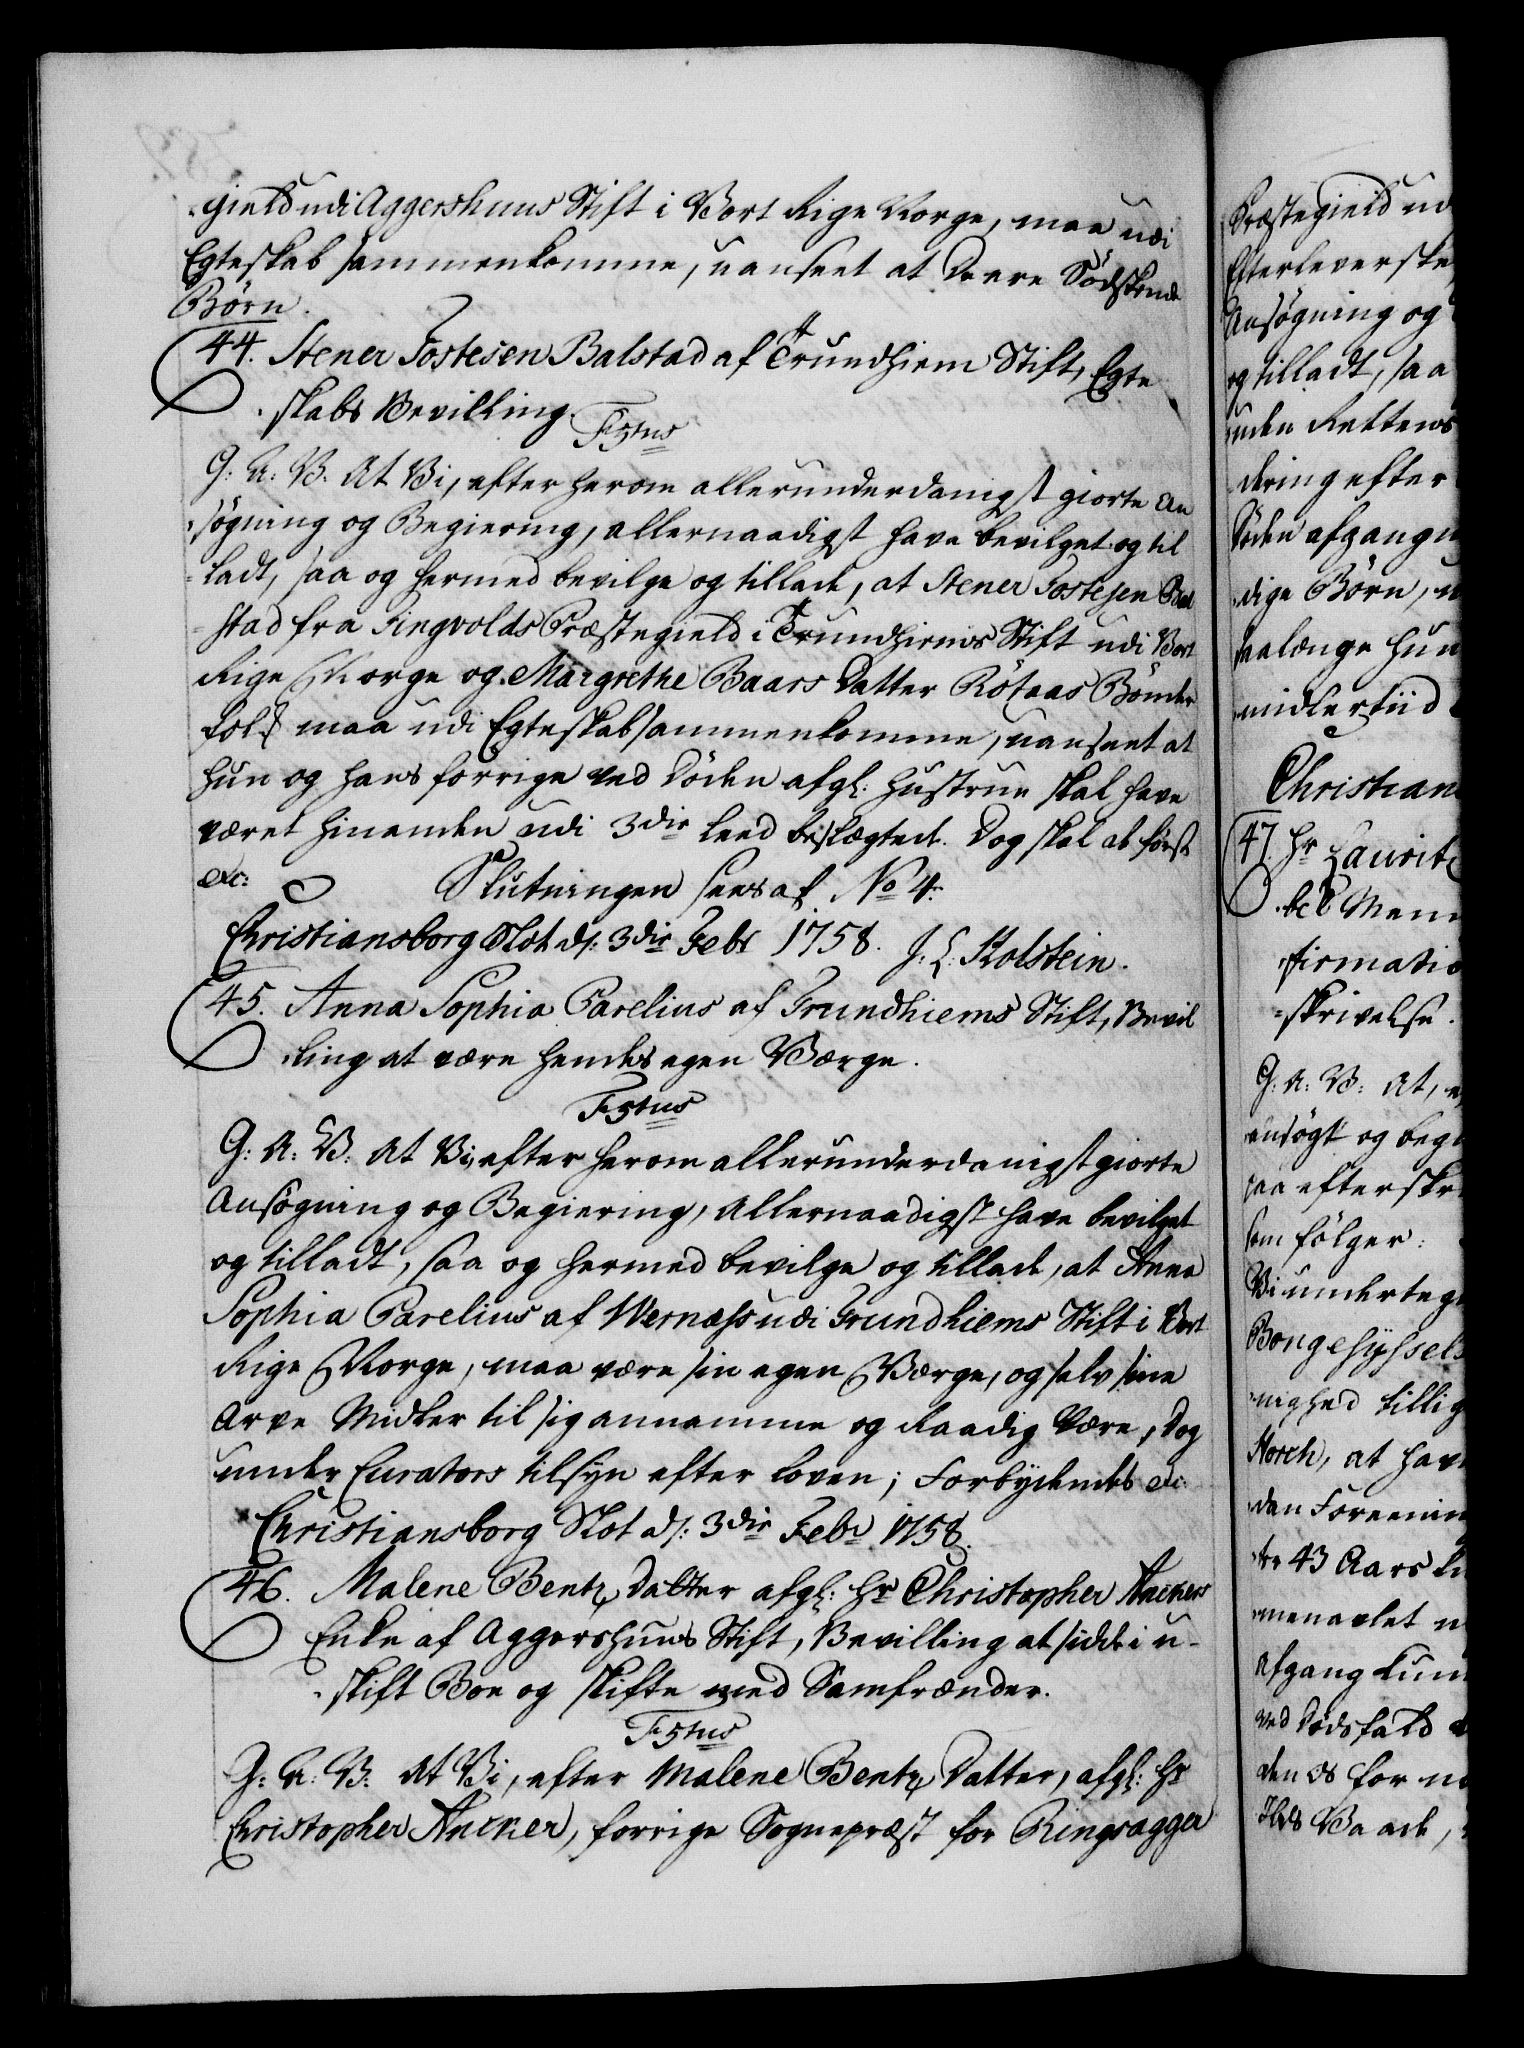 -gield udi Aggershuus Stift i Vort Rige Norge, maa udi
Egteskab sammenkomme, uanseet at De ere Södskende
Børn.
44. Stener Tostesen Balstad af Trundhiem Stift, Egte
-skabs Bevilling.
F5tus
G: A: V. At Vi, efter herom allerunderdanigst giorte An
-søgning og Begiering, allernaadigst have bevilget og til
-ladt, saa og hermed bevilge og tillade, at Stener Tostesen Bal
-stad fra Tingvolds Præstegield i Trundhiems Stift udi Vort
Rige Norge og Margrethe Baars Datter Rötaas Bönder
folk maa udi Egteskab sammenkomme, uanseet at
hun og hans forrige ved Döden afgl: Hustrue skal have
været hinanden udi 3die Leed beslægtede. Dog skal de først
etc: Slutningen sees af No 4.
Christiansborg Slot d: 3die Febr 1758. J. L. Holstein.
45. Anna Sophia Parelius af Trundhiems Stift, Bevil
-ling at være hendes egen Værge.
F5tus
G: A: V: At Vi, efter herom allerunderdanigst giorte
Ansögning og Begiering, Allernaadigst have bevilget
og tilladt, saa og hermed bevilge og tillade, at Anna
Sophia Parelius af Wernæss udi Trundhiems Stift i Vort
Rige Norge, maa være sin egen Værge, og selv sine
Arve Midler til sig annamme og Raadig være, Dog
under Curators tilsyn efter Loven; Forbydendes etc:
Christiansborg Slot d: 3die Febr 1758.
46. Malene Bentz Datter afgl: Hr Christopher Anckers
Enke af Aggershuus Stift, Bevilling at sidde i u-
-skift Boe og skifte med Samfrænder.
F5tus
G: A: V: At Vi, efter Malene Bentz Datter, afgl: Hr
Christopher Ancker, forrige Sognepræst for Ringsagger
Præstegield ud
Efterleverske
Ansøgning og
og tilladt, saa
uden Rettens
-dering efter
Döden afgangn
-dige Börn,
saalænge hun
imidlertiid
Christian
47. Hr Laurit
-bel Mem
-firmatio
-skrivelse.
G: A: V: At, e
ansögt og begi
saa efterskre
som fölger:
Vi underteg
Bongehyssels
-nighed tillig
Horch, at have
-dan Foreenin
43 Aars
-menavlet
Afgang kun
ved Dödsfald
den os for
Baade,